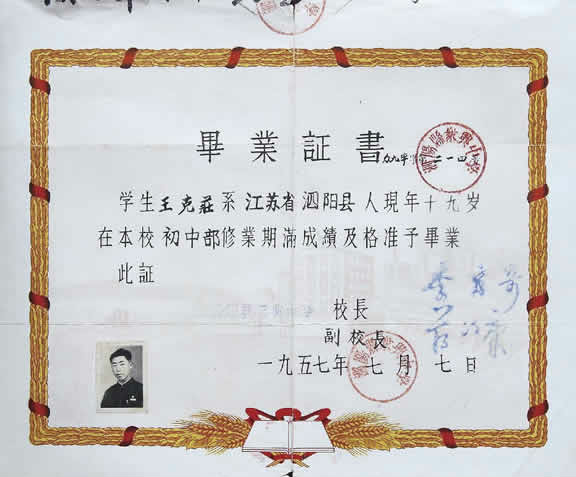 畢業証書
二一四
学生王克莊系江苏省泗阳县人现年十九岁
在本校初中部修業期滿成績及格准予畢業
此証
校長
副校長
一九五七年七月七日